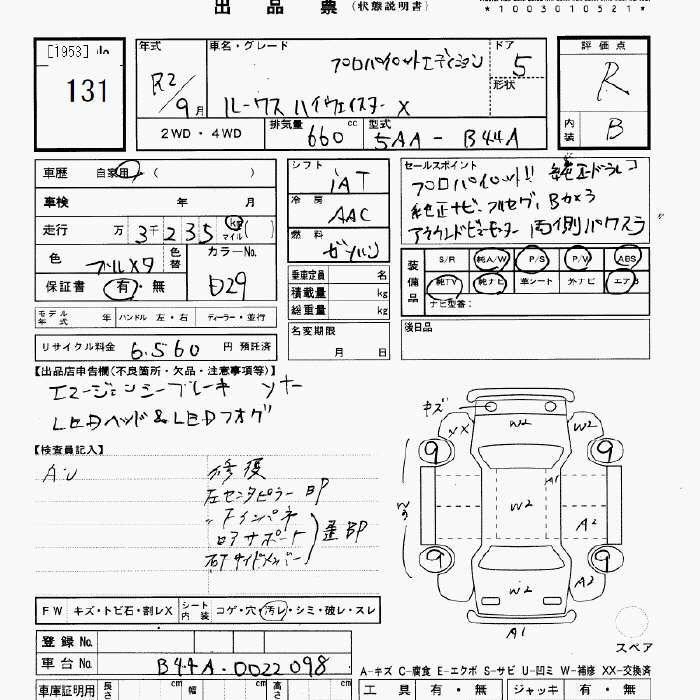 出品票（状態説明書）
*1003010521*
[1953]
131
年式
R2/9月
車名・グレード
プロパイロットエディション
ルークス ハイウェイスター X
ドア
5
形状
評価点
R
内装
B
2WD・4WD
排気量
660cc
型式
5AA - B44A
車歴 自家用（ ）
車検 年 月
走行 万3千235 km マイル（ ）
色 ブルーメタ
色替
カラーNo.
保証書 有・無
モデル年式 年 ハンドル 左・右 ディーラー・並行
リサイクル料金 6,560円 預託済
シフト
IAT
冷房
AAC
燃料
ガソリン
乗車定員 名
積載量 kg
総重量 kg
名変期限
月 日
セールスポイント
プロパイロット!! 純正ドラレコ
純正ナビ、フルセグ、Bカメラ
アラウンドビューモニター 両側パワスラ
装備品
S/R 純A/W P/S P/V ABS
純TV 純ナビ 革シート 外ナビ エアB
ナビ型番：
後日品
【出品店申告欄(不良箇所・欠品・注意事項等)】
エマージェンシーブレーキ ソナー
LEDヘッド&LEDフォグ
【検査員記入】
AU
修復
左センタピラー BP
〃 インパネ
サポート
サイドメンバー
歪BP
キズ
W2
XX
W2
9
9
A1
W2
A2
9
9
W2
A2
A1
スペア
FW キズ・トビ石・割レX シート内装 コゲ・穴・汚レ・シミ・破レ・スレ
登録No.
車台No. B44A-0022098
A-キズ C-腐食 E-エクボ S-サビ U-凹ミ W-補修 XX-交換済
車庫証明用 長さ cm 幅 cm 高さ cm
工具 有・無 ジャッキ 有・無